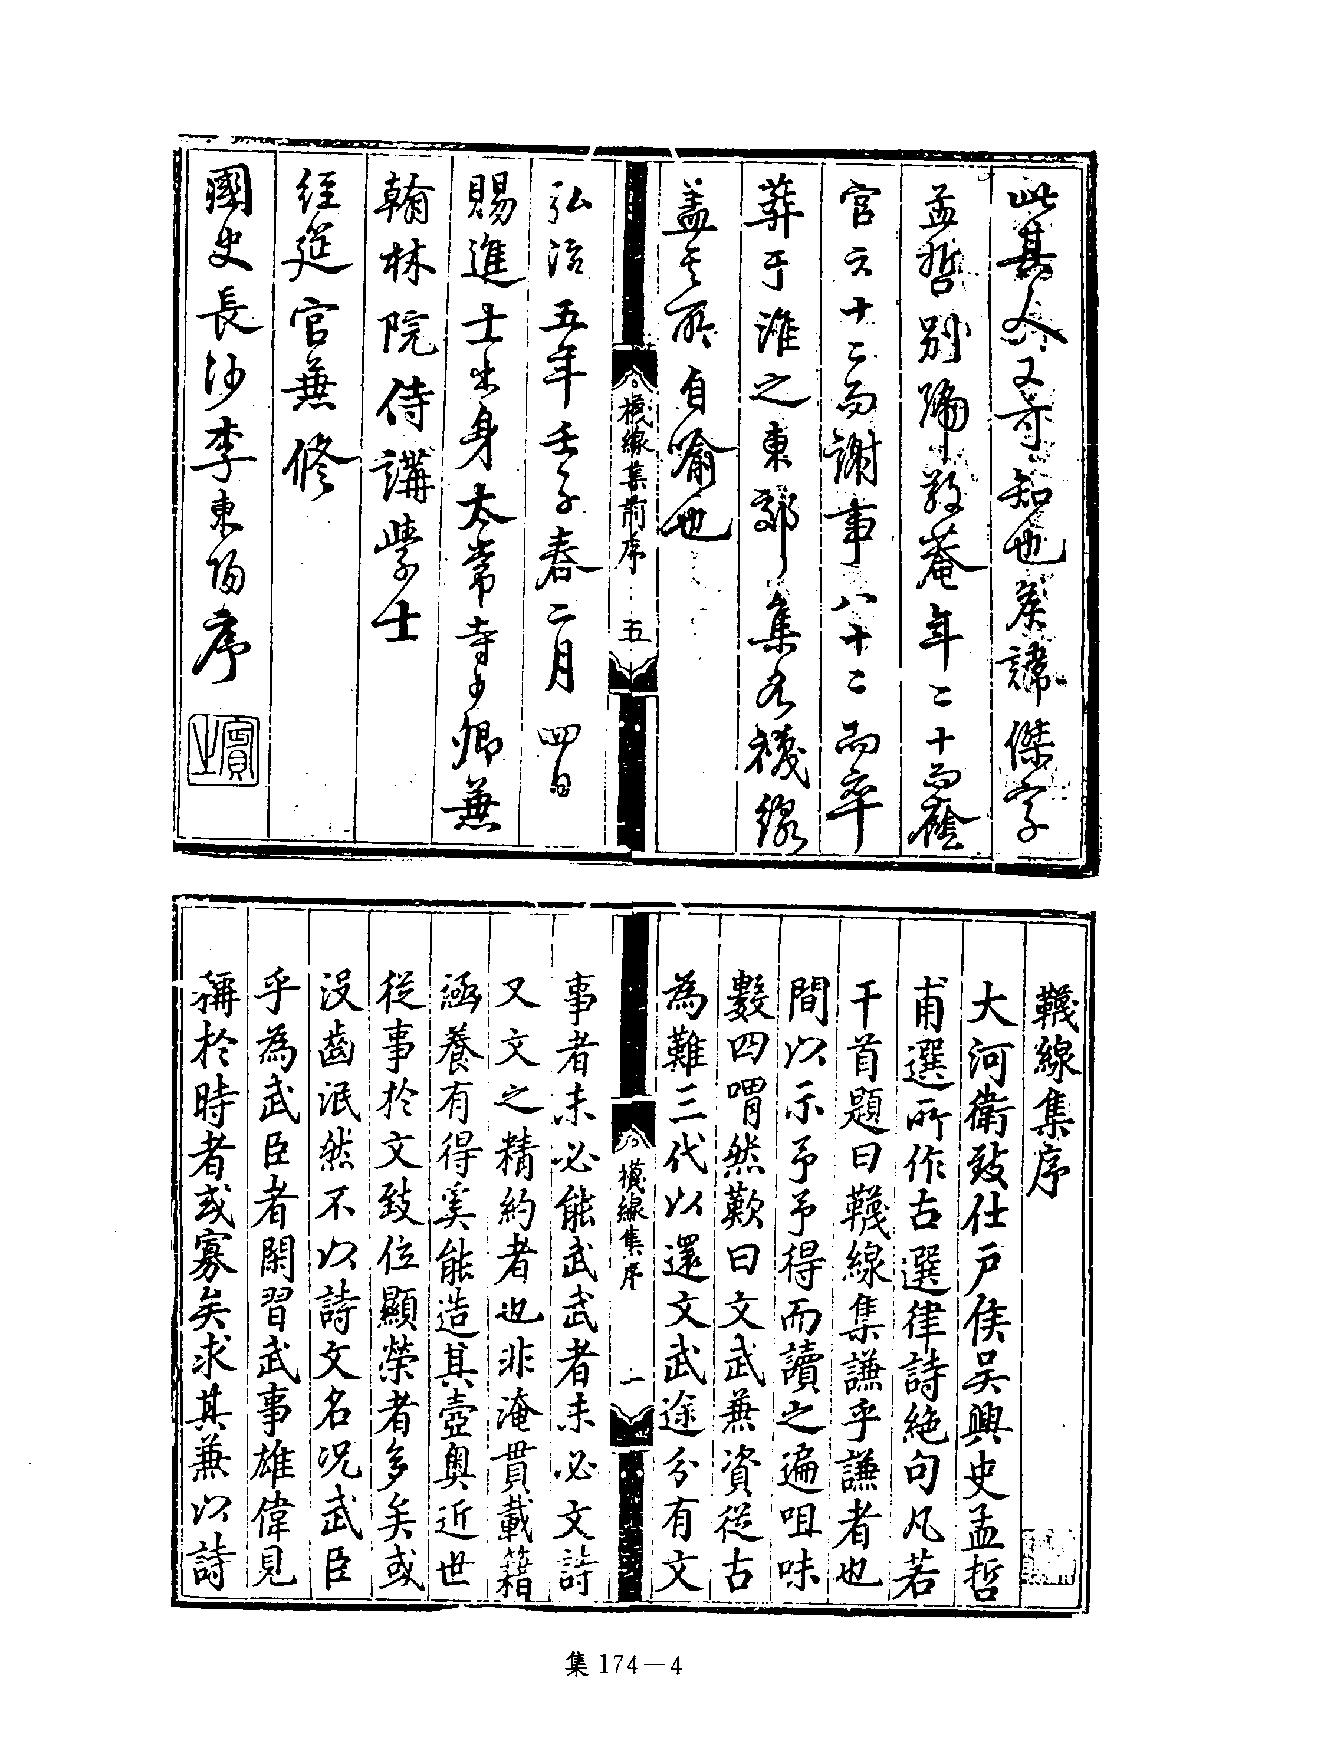 此其人又奇知也矣諱傑字
孟哲别号敬菴年二十而襲
官六十二而謝事八十二而卒
葬于淮之東郊集名襪線
盖其所自喻也
襪線集前序 五
弘治五年壬子春二月四日
賜進士出身太常寺少卿兼
翰林院侍講學士
經筵官兼修
國史長沙李東陽序
賓之
韈線集序
大河衛致仕戶侯吴興史孟哲
甫選所作古選律詩絶句凡若
干首題曰韈線集謙乎謙者也
間以示予予得而讀之遍咀味
數四喟然歎曰文武兼資從古
為難三代以還文武途分有文
襪線集序 一
事者未必能武武者未必文詩
又文之精約者也非淹貫載籍
涵養有得奚能造其壼奥近世
從事於文致位顯榮者多矣或
没齒泯然不以詩文名况武臣
乎為武臣者閑習武事雄偉見
稱於時者或寡矣求其兼以詩
集 174—4